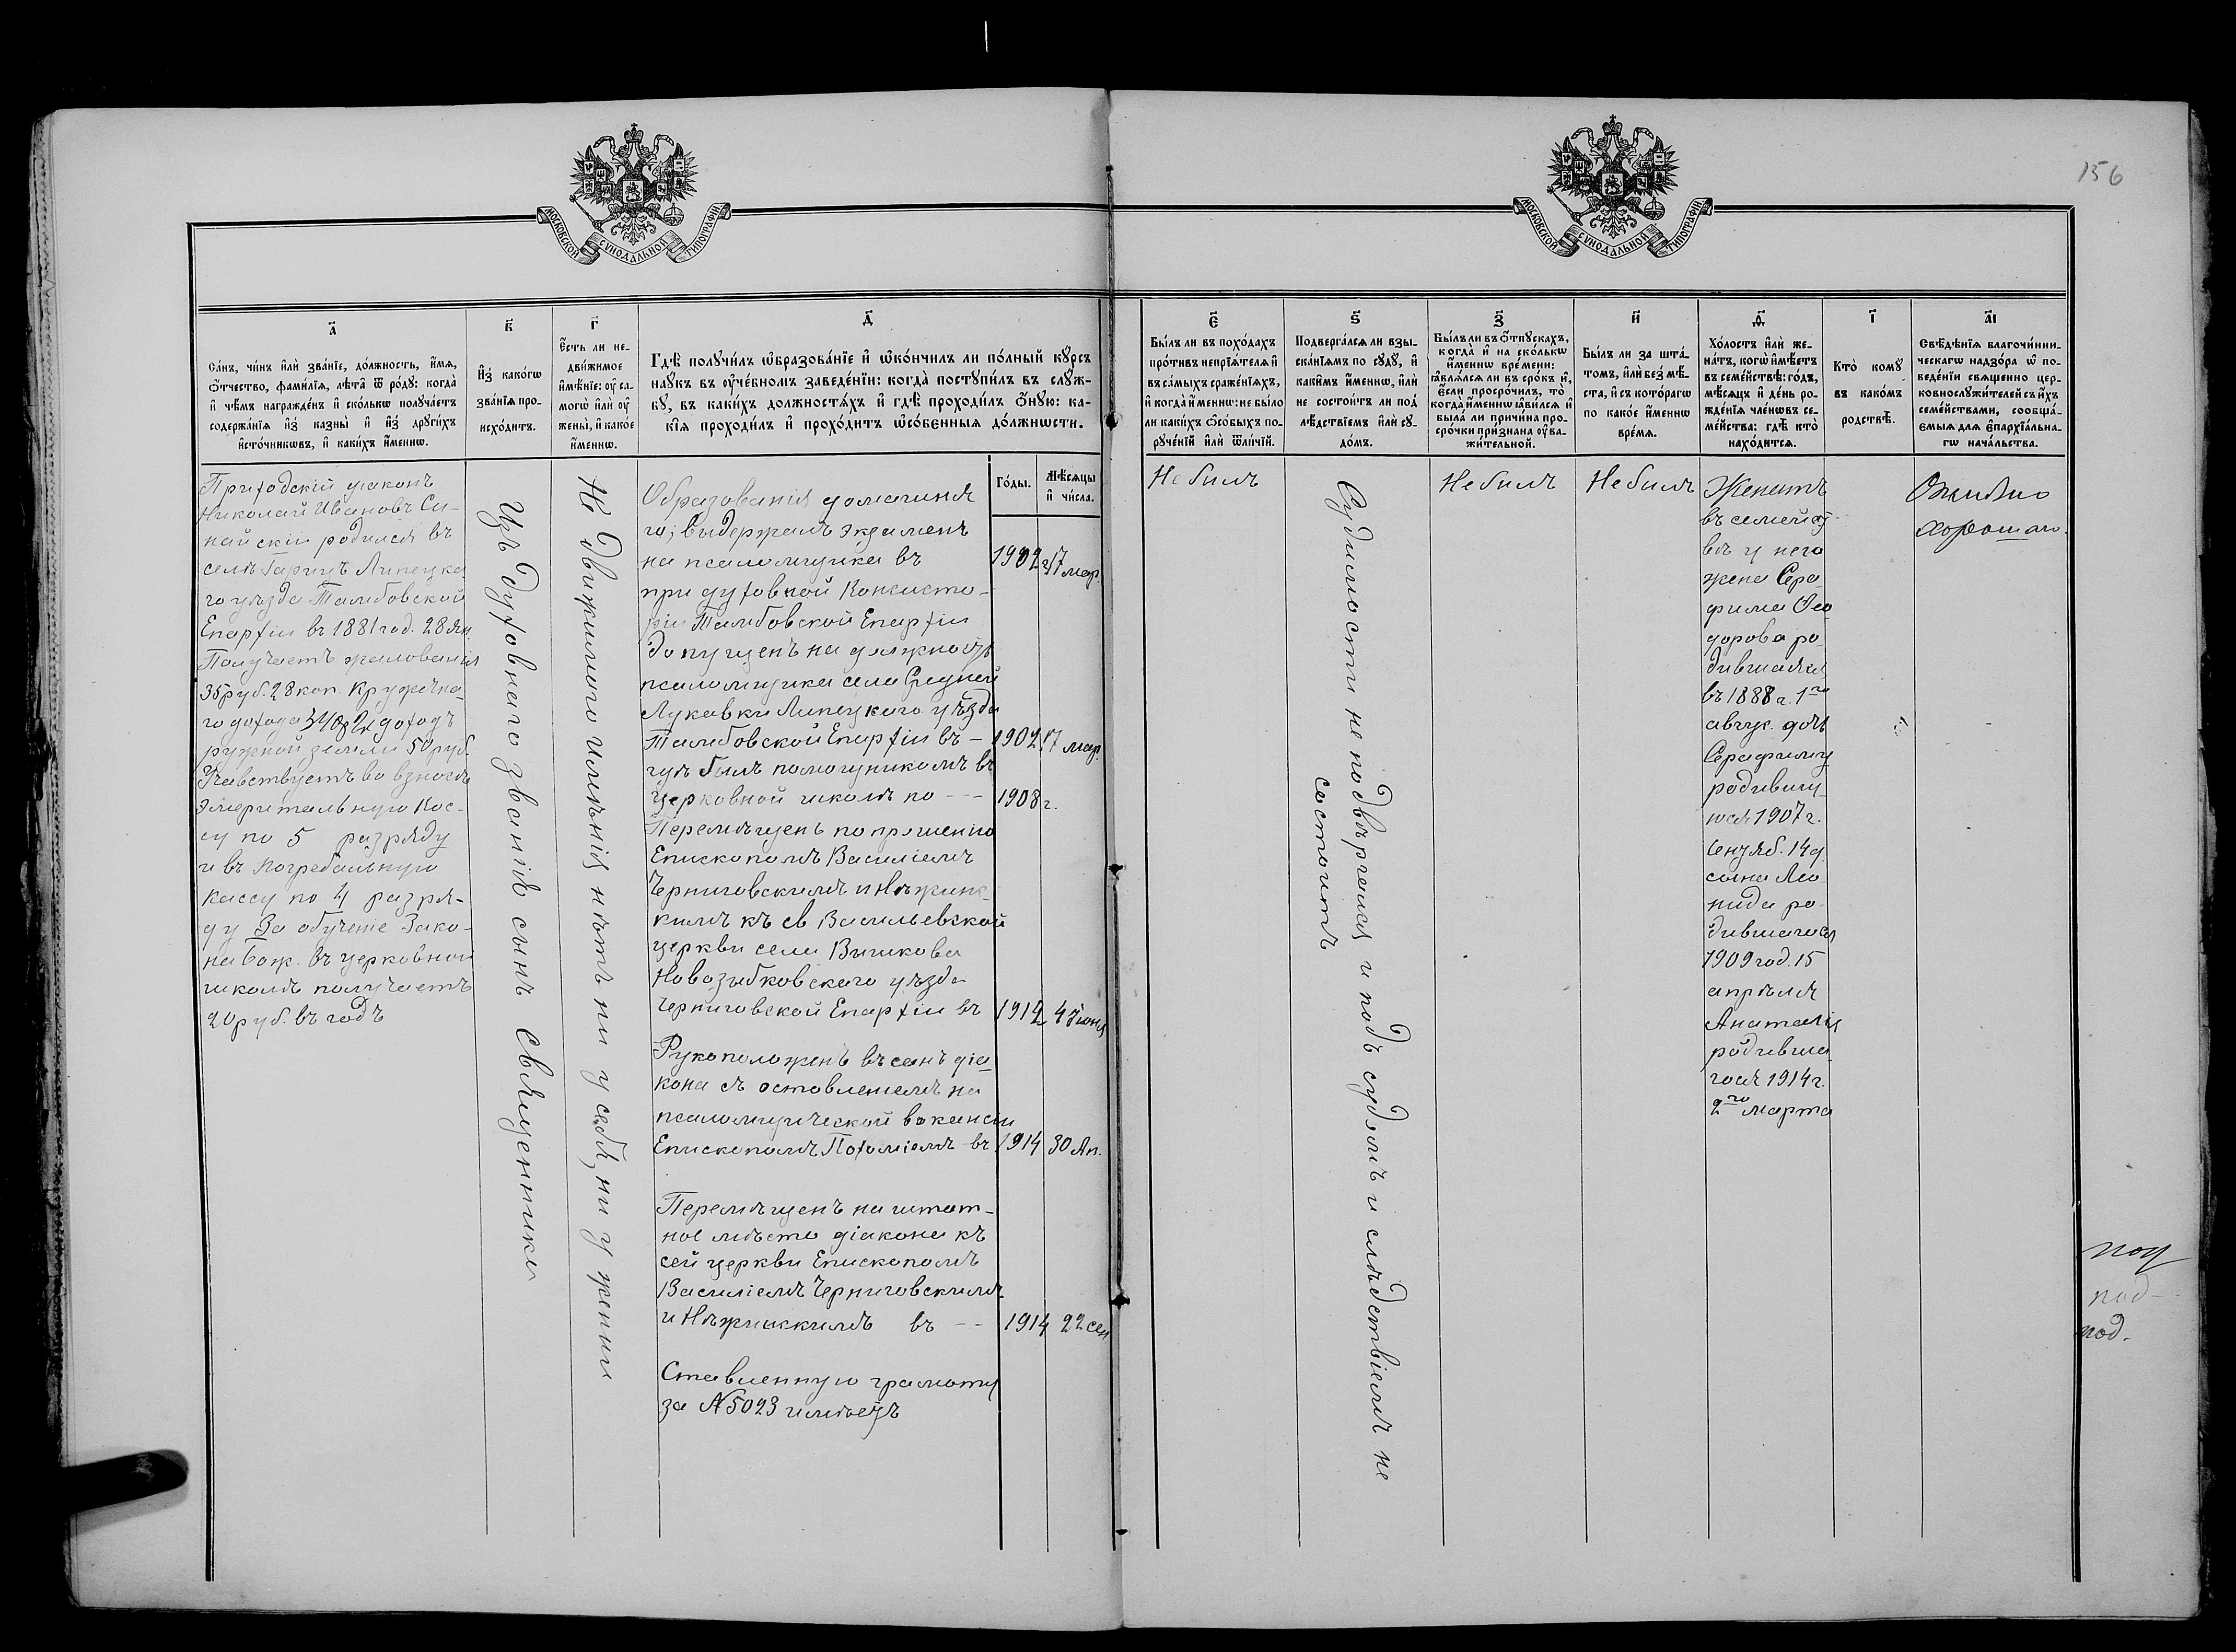 156
МОСКОВСКОЙ СУНОДАЛЬНОЙ ТИПОГРАФІИ.
МОСКОВСКОЙ СУНОДАЛЬНОЙ ТИПОГРАФІИ.
а҃
Са́нъ, чи́нъ и҆лѝ зва́нїе, до́лжность, и҆́мѧ,
ѻ҆́тчество, фами́лїѧ, лѣ́та ѿ ро́дꙋ: когда̀
и҆ чѣ́мъ награжде́нъ и҆ ско́лькѡ полꙋча́етъ
содержа́нїѧ и҆з̾ казны̀ и҆ и҆з̾ дрꙋги́хъ
и҆сто́чникѡвъ, и҆ каки́хъ и҆́меннѡ.
в҃
И҆з̾ како́гѡ
зва́нїѧ про-
исхо́дитъ.
г҃
Є҆́сть ли не-
дви́жимое
и҆мѣ́нїе: ᲂу҆ са-
могѡ̀ и҆лѝ ᲂу҆
жены̀, и҆ како́е
и҆́меннѡ.
д҃
Гдѣ̀ полꙋчи́лъ ѡ҆бразова́нїе и҆ ѡ҆ко́нчилъ ли по́лный кꙋ́рсъ
наꙋ́къ въ ᲂу҆че́бномъ заведе́нїи: когда̀ постꙋпи́лъ въ слꙋ́ж-
бꙋ, въ каки́хъ до́лжностѧхъ и҆ гдѣ̀ проходи́лъ ѻ҆́нꙋю: ка-
кі́ѧ проходи́лъ и҆ прохо́дитъ ѡ҆со́бенныѧ до́лжнѡсти.
Го́ды.
Мѣ́сѧцы
и҆ чи́сла.
є҃
Бы́лъ ли въ похо́дахъ
про́тивъ непрїѧ́телѧ и҆
въ са́мыхъ сраже́нїѧхъ,
и҆ когда̀ и҆́меннѡ: не бы́ло
ли каки́хъ ѻ҆со́быхъ по-
рꙋче́нїй и҆лѝ ѿли́чїй.
ѕ҃
Подверга́лсѧ ли взы-
ска́нїѧмъ по сꙋдꙋ̀, и҆
каки́мъ и҆́меннѡ, и҆лѝ
не состои́тъ ли под̾
слѣ́дствїемъ и҆лѝ сꙋ-
до́мъ.
з҃
Бы́лъ ли въ ѻ҆́тпꙋскахъ,
когда̀ и҆ на ско́лькѡ
и҆́меннѡ вре́мени:
ꙗ҆влѧ́лсѧ ли въ сро́къ и҆,
є҆́сли просро́чилъ, то̀
когда̀ и҆́меннѡ ꙗ҆ви́лсѧ и҆
была̀ ли причи́на про-
сро́чки при́знана ᲂу҆ва-
жи́тельной.
и҃
Бы́лъ ли за шта́-
томъ, и҆лѝ без̾ мѣ́-
ста, и҆ съ кото́рагѡ
по како́е и҆́меннѡ
вре́мѧ.
ѳ҃
Хо́лостъ и҆лѝ же-
на́тъ, когѡ̀ и҆мѣ́етъ
въ семе́йствѣ: го́дъ,
мѣ́сѧцъ и҆ де́нь ро-
жде́нїѧ чле́нѡвъ се-
ме́йства: гдѣ̀ кто̀
нахо́дитсѧ.
і҃
Кто̀ комꙋ̀
въ како́мъ
родствѣ̀.
а҃і
Свѣ́дѣнїѧ благочи́нни-
ческагѡ надзо́ра ѡ҆ по-
веде́нїи свѧще́нно цер-
ковнослꙋжи́телей съ и҆́хъ
семе́йствами, сообща́-
ємыѧ длѧ є҆парxїа́льна-
гѡ нача́льства.
Приходскій діаконъ
Николай Ивановъ Си-
найскій родился въ
селѣ Гарицъ Липецка
го уѣзда Тамбовской
Епархіи въ 1881 год. 28 Ян.
Получаетъ жалованія
35 руб. 28 коп. Кружечна-
го дохода доходъ
ружной земли 50 руб.
Учавствуетъ во взносѣ
Эмеритальную Кас-
су по 5 разряду
и въ погребальную
кассу по 4 разря-
ду За обученіе Зако-
на Бож. въ церковной
школѣ получаетъ
20 руб. въ годъ
Изъ Духовнаго званія сынъ Священника
Не движимого имѣнія нѣтъ ни у себя, ни у жены
Образованія домашня
го; выдержалъ экзаменъ
на псаломщика въ 1902 г. 17 мар.
при духовной Консисто-
ріи Тамбовской Епархіи
допущенъ на должность
псаломщика села Средней
Лукавки Липецкого уѣзда
Тамбовской Епархіи въ - 1902 17 мар.
гдѣ былъ помощникомъ въ
церковной школѣ по - - - 1908 г.
Перемѣщенъ по прошенію
Епископомъ Василіемъ
Черниговскимъ и Нѣжинс-
кимъ къ св Васильевской
церкви села Вышкова
Новозыбковского уѣзда
Черниговской Епархіи въ 1912 4 Іюня
Рукоположенъ въ санъ діа
кона съ оставленіемъ на
псаломщической вакансіи
Епископомъ Пахоміемъ въ 1914 30 Ап.
Перемѣщенъ на штат-
ное мѣсто діакона къ
сей церкви Епископомъ
Василіемъ Черниговскимъ
и Нѣжинскимъ въ - - 1914 22 сен
Ставленную грамоту
за №5023 имѣетъ
Не былъ
Судимости не подвергался и подъ судомъ и слѣдствіемъ не
состоитъ
Не былъ
Не былъ
Женатъ
въ семейст-
вѣ у него
жена Сера
фима Фео
дорова ро
дившаяся
въ 1888 г. 1го
авгус. дочь
Серафиму
родившу
юся 1907 г.
Сентяб. 14 д
сына Лео
нида ро-
дившагося
1909 год. 15
апрѣля
Анатолія
родивша
гося 1914 г.
2го марта
Отлично
хорошаго.
под
под-
под.